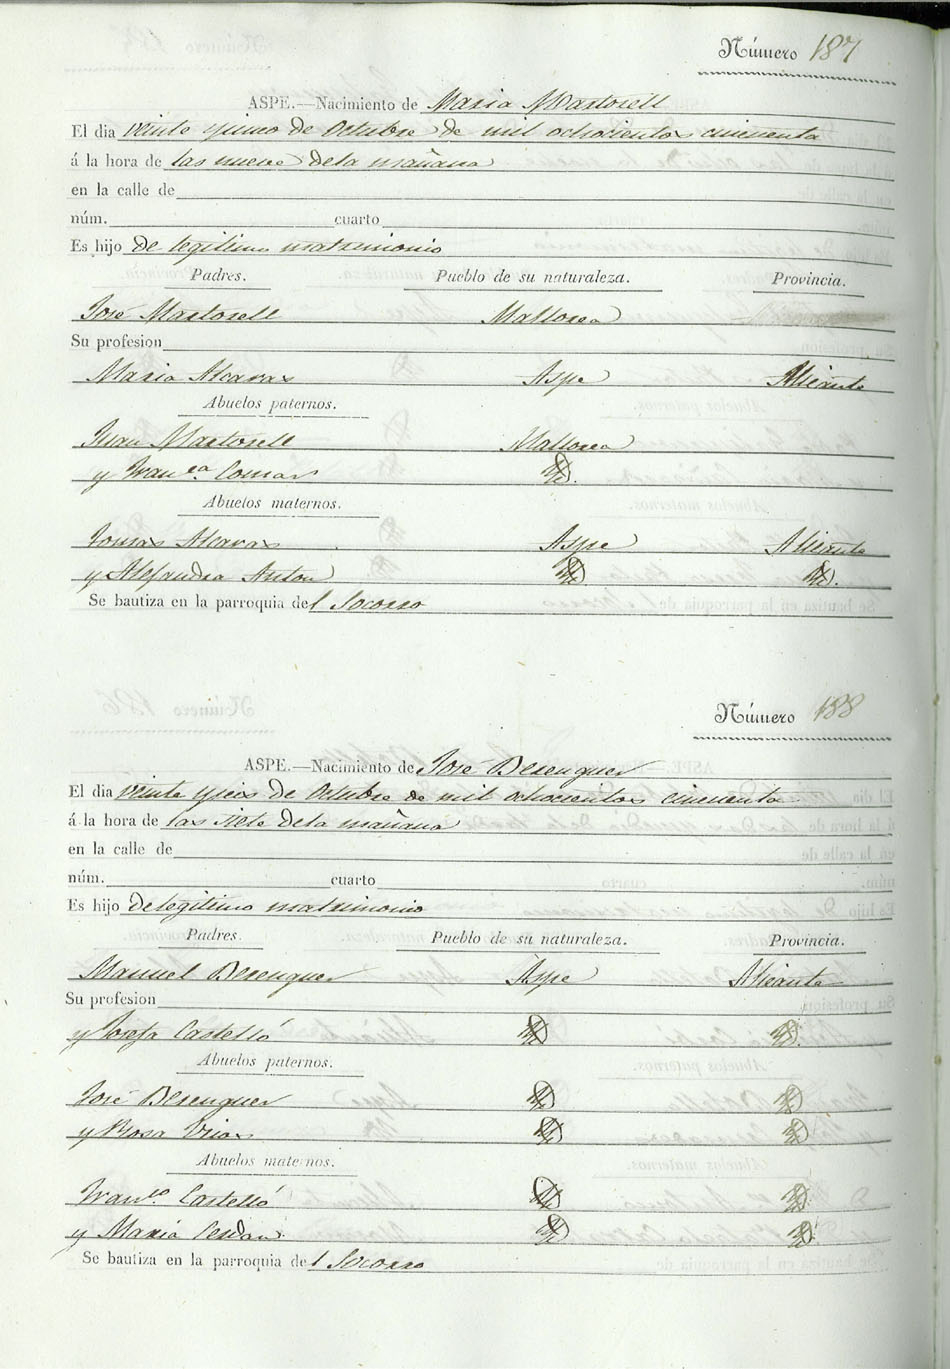 Número 187
ASPE.—Nacimiento de Maria Martorell
El dia veinte y cinco de Octubre de mil ochocientos cincuenta
á la hora de las nueve dela mañana
en la calle de
núm. cuarto
Es hijo de legitimo matrimonio
Padres. Pueblo de su naturaleza. Provincia.
José Martorell Mallorca
Su profesion
Maria Alcaras Aspe Alicante
Abuelos paternos.
Juan Martorell Mallorca
y Fran.ca Comar Yd.
Abuelos maternos.
Tomas Alcaras Aspe Alicante
y Alejandra Anton Yd. Yd.
Se bautiza en la parroquia del Socorro
Número 188
ASPE.—Nacimiento de Jose Berenguer
El dia veinte y seis de Octubre de mil ochocientos cincuenta
á la hora de las siete dela mañana
en la calle de
núm. cuarto
Es hijo de legitimo matrimonio
Padres. Pueblo de su naturaleza. Provincia.
Manuel Berenguer Aspe Alicante
Su profesion
y Josefa Castelló Yd. Yd.
Abuelos paternos.
José Berenguer Yd. Yd.
y Rosa Yd. Yd.
Abuelos maternos.
Fran.co Castelló Yd. Yd.
y Maria Cerdan Yd. Yd.
Se bautiza en la parroquia del Socorro